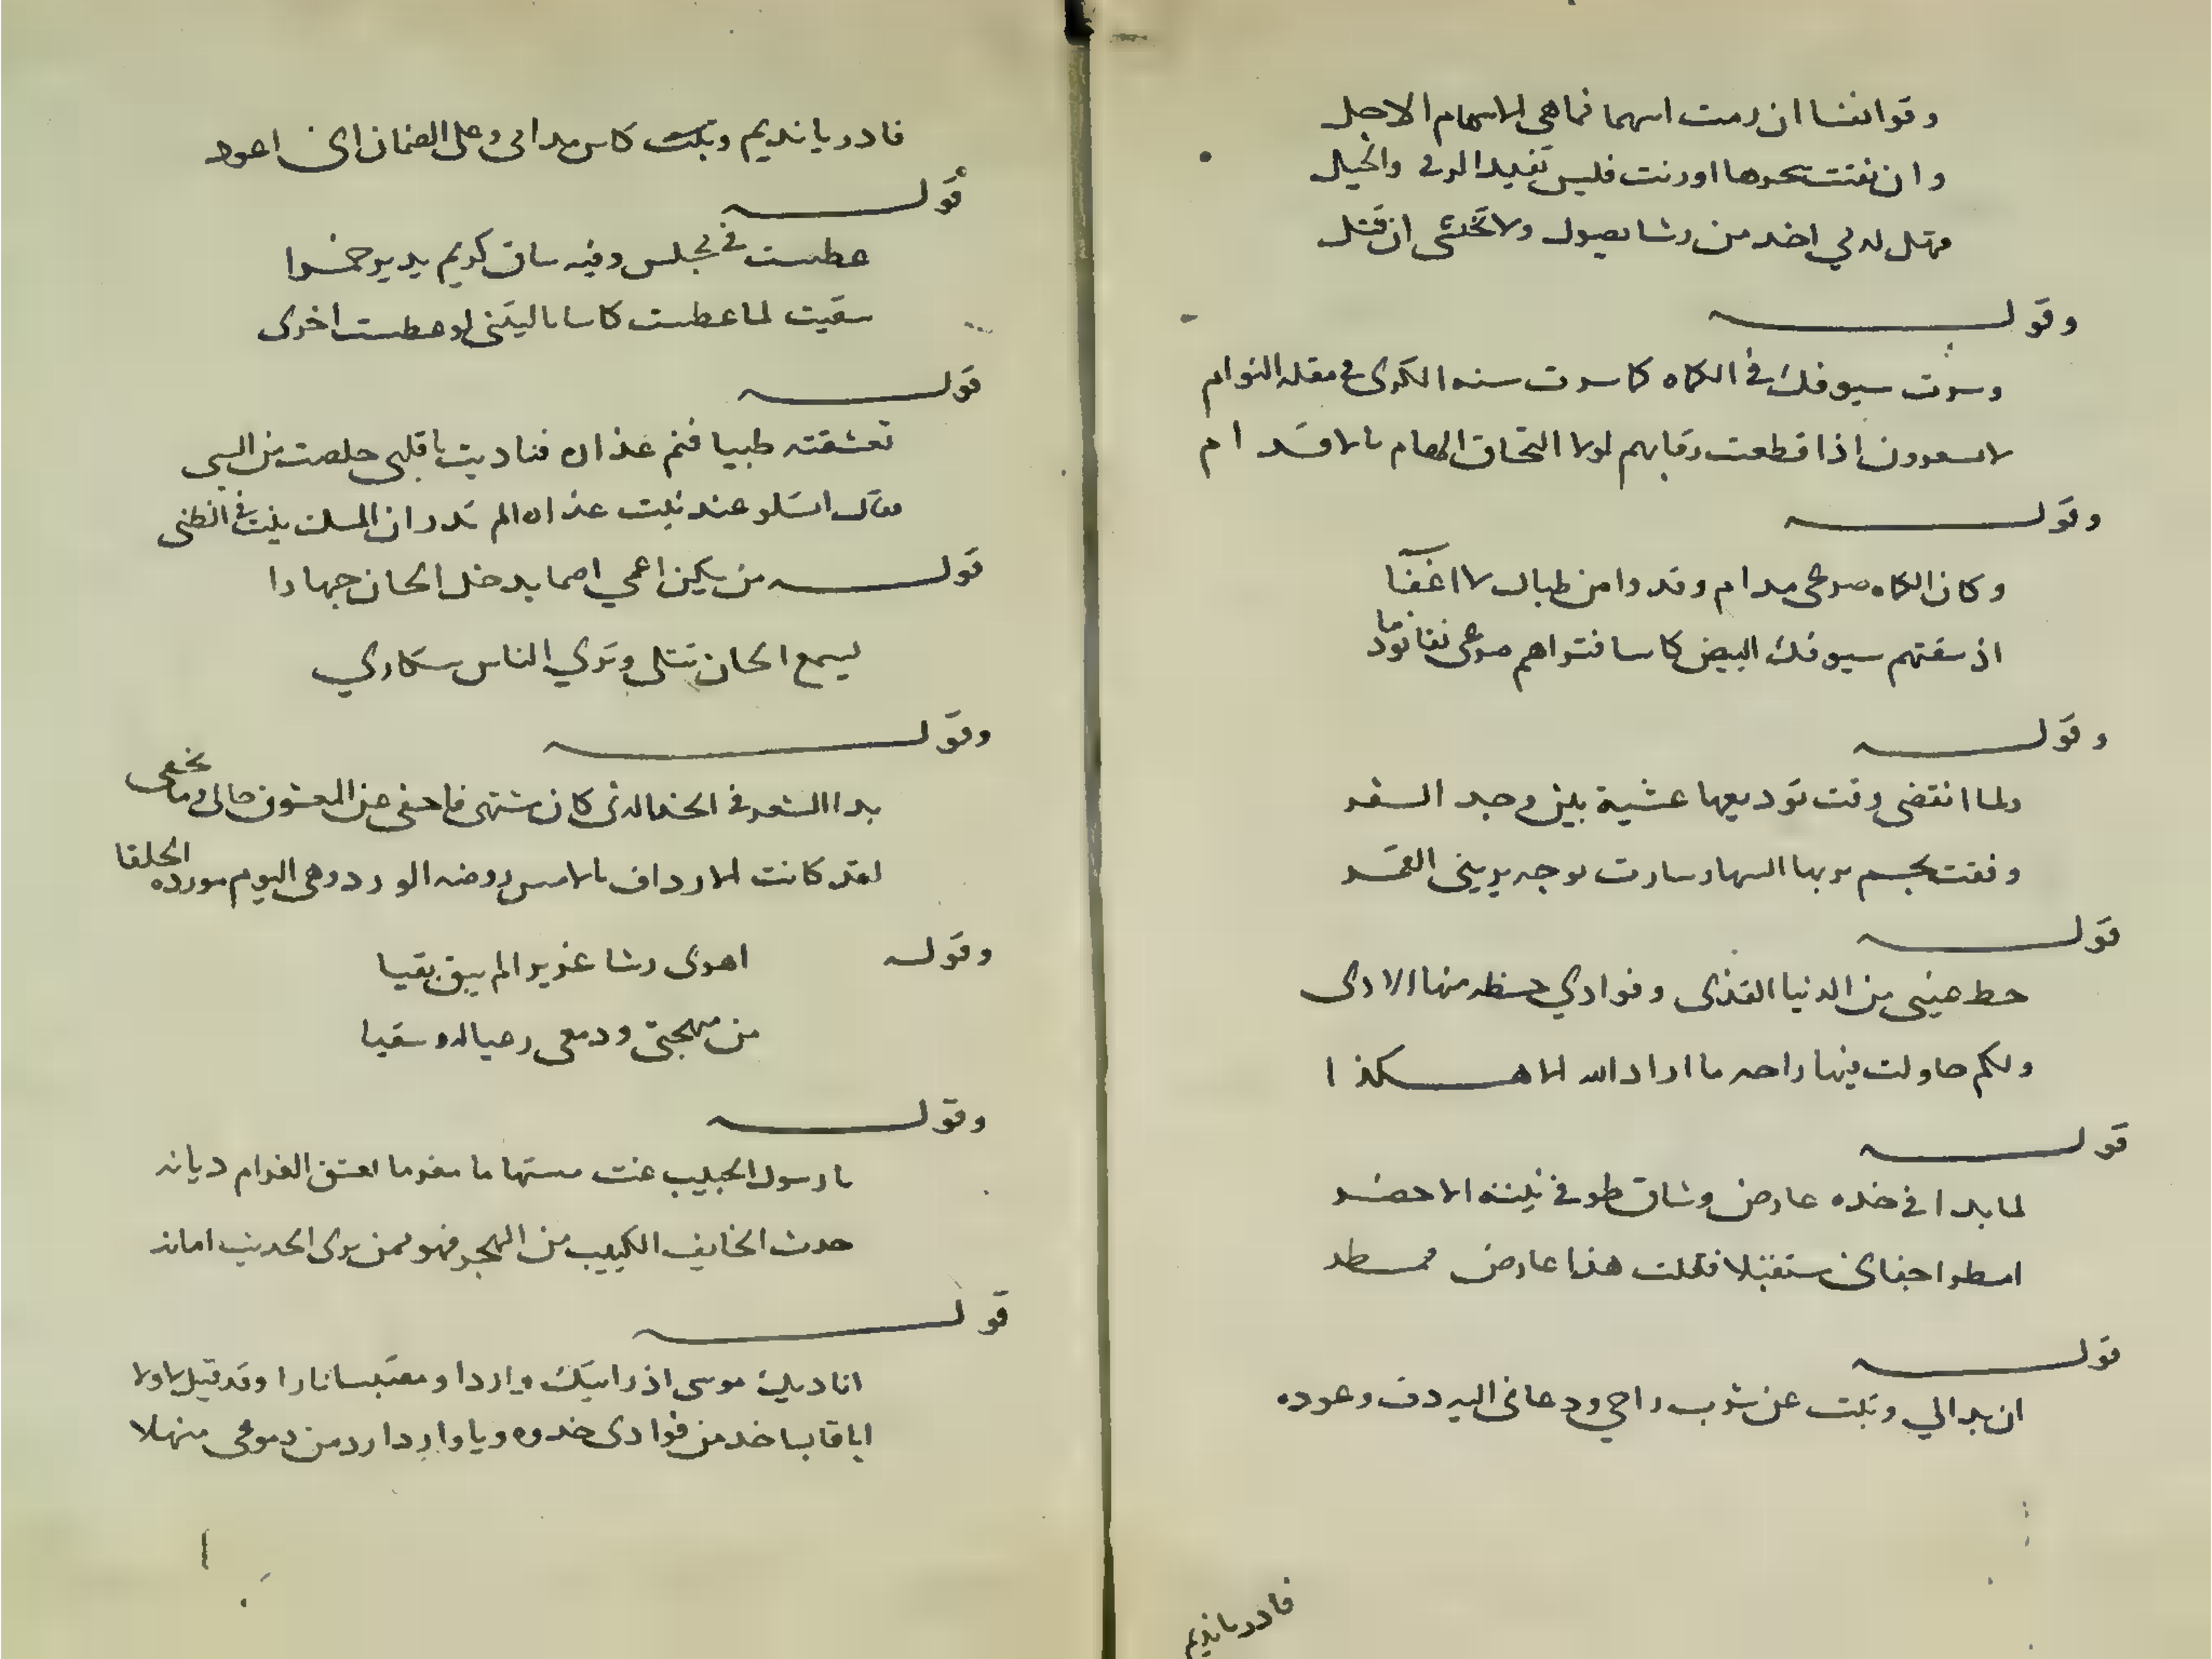 وقوانفنا ان رمت اسهما فماهي الاسهام الاجل
وان نفثت سحرها اورنت فليس تفيد الرقى والحيل
فهل لدلي اخد من رشا يصول ولا تخشى ان قتل
وقوله
وسرت سيوفك في الكماه كما سرت سنه الكرى في مقله النوام
لا يسعرون اذا قطعت رقابهم لولا التحاق الهام بالاقدام
وقوله
وكان الكماه صرعى مدام وقد وا من طبال لا اغفا
اذ سقتهم سيوفك البيض كاسا فتراهم صرعى نفا نودما
وقوله
ولما انقضى وقت توديعها عشية بين وجد السفر
وقفت بجسم يريها السها وسارت بوجه يريني القمر
قوله
حط عيني من الدنيا القذى وفوادي حظه منها الادى
ولكم حاولت فيها راحه ما اراد الله الا هكذا
قوله
لما بدا في خده عارض وشاق طرفي نبته الاخضر
امطر اجفاني مستقبلا فقلت هذا عارض ممطر
قوله
ان بدالي وتبت عن شرب راحي ودعاني اليه دف وعوده
فادر يا نديم
فادر يا نديم وبكت كاس مدامي وعلى الضمان اني اعود
قوله
عطست في مجلس وفيه ساق كريم يدير خمرا
سقيت لما عطست كاسا ياليتني لو عطست اخرى
قوله
تعشقته ظبيا فنم عذاره فناديت يا قلبي خلصت من السبي
فقال اتسلو عند نبت عذاره الم تدر ان المسك ينبت في الظبي
قوله من يكن اعمي اصما يدخل الحان جهارا
ليسمع الحان تتلى وتري الناس سكاري
وقوله
بدا الشعر في الخد الذي كان مشتهى فاخفى عن المعشوق حالي وما يخفى
لقد كانت الارداف بالامس روضه الورد وهي اليوم مورده الحلفا
وقوله اهوى رشا غريرا لم يبق بقيا
من مهجتي ودمعي رعيا له وسقيا
وقوله
يا رسول الحبيب غث مستهاما مغرما يعشق الغرام ديانه
حدث الخايف الكييب من الهجر فهو ممن يرى الحديث امانه
قوله
اناديك موسى اذ رايتك واردا ومقتبسا نارا وقد قيل لا ولا
ايا قابسا خد من فوادى خدوه ويا واردا رد من دموعى منهلا